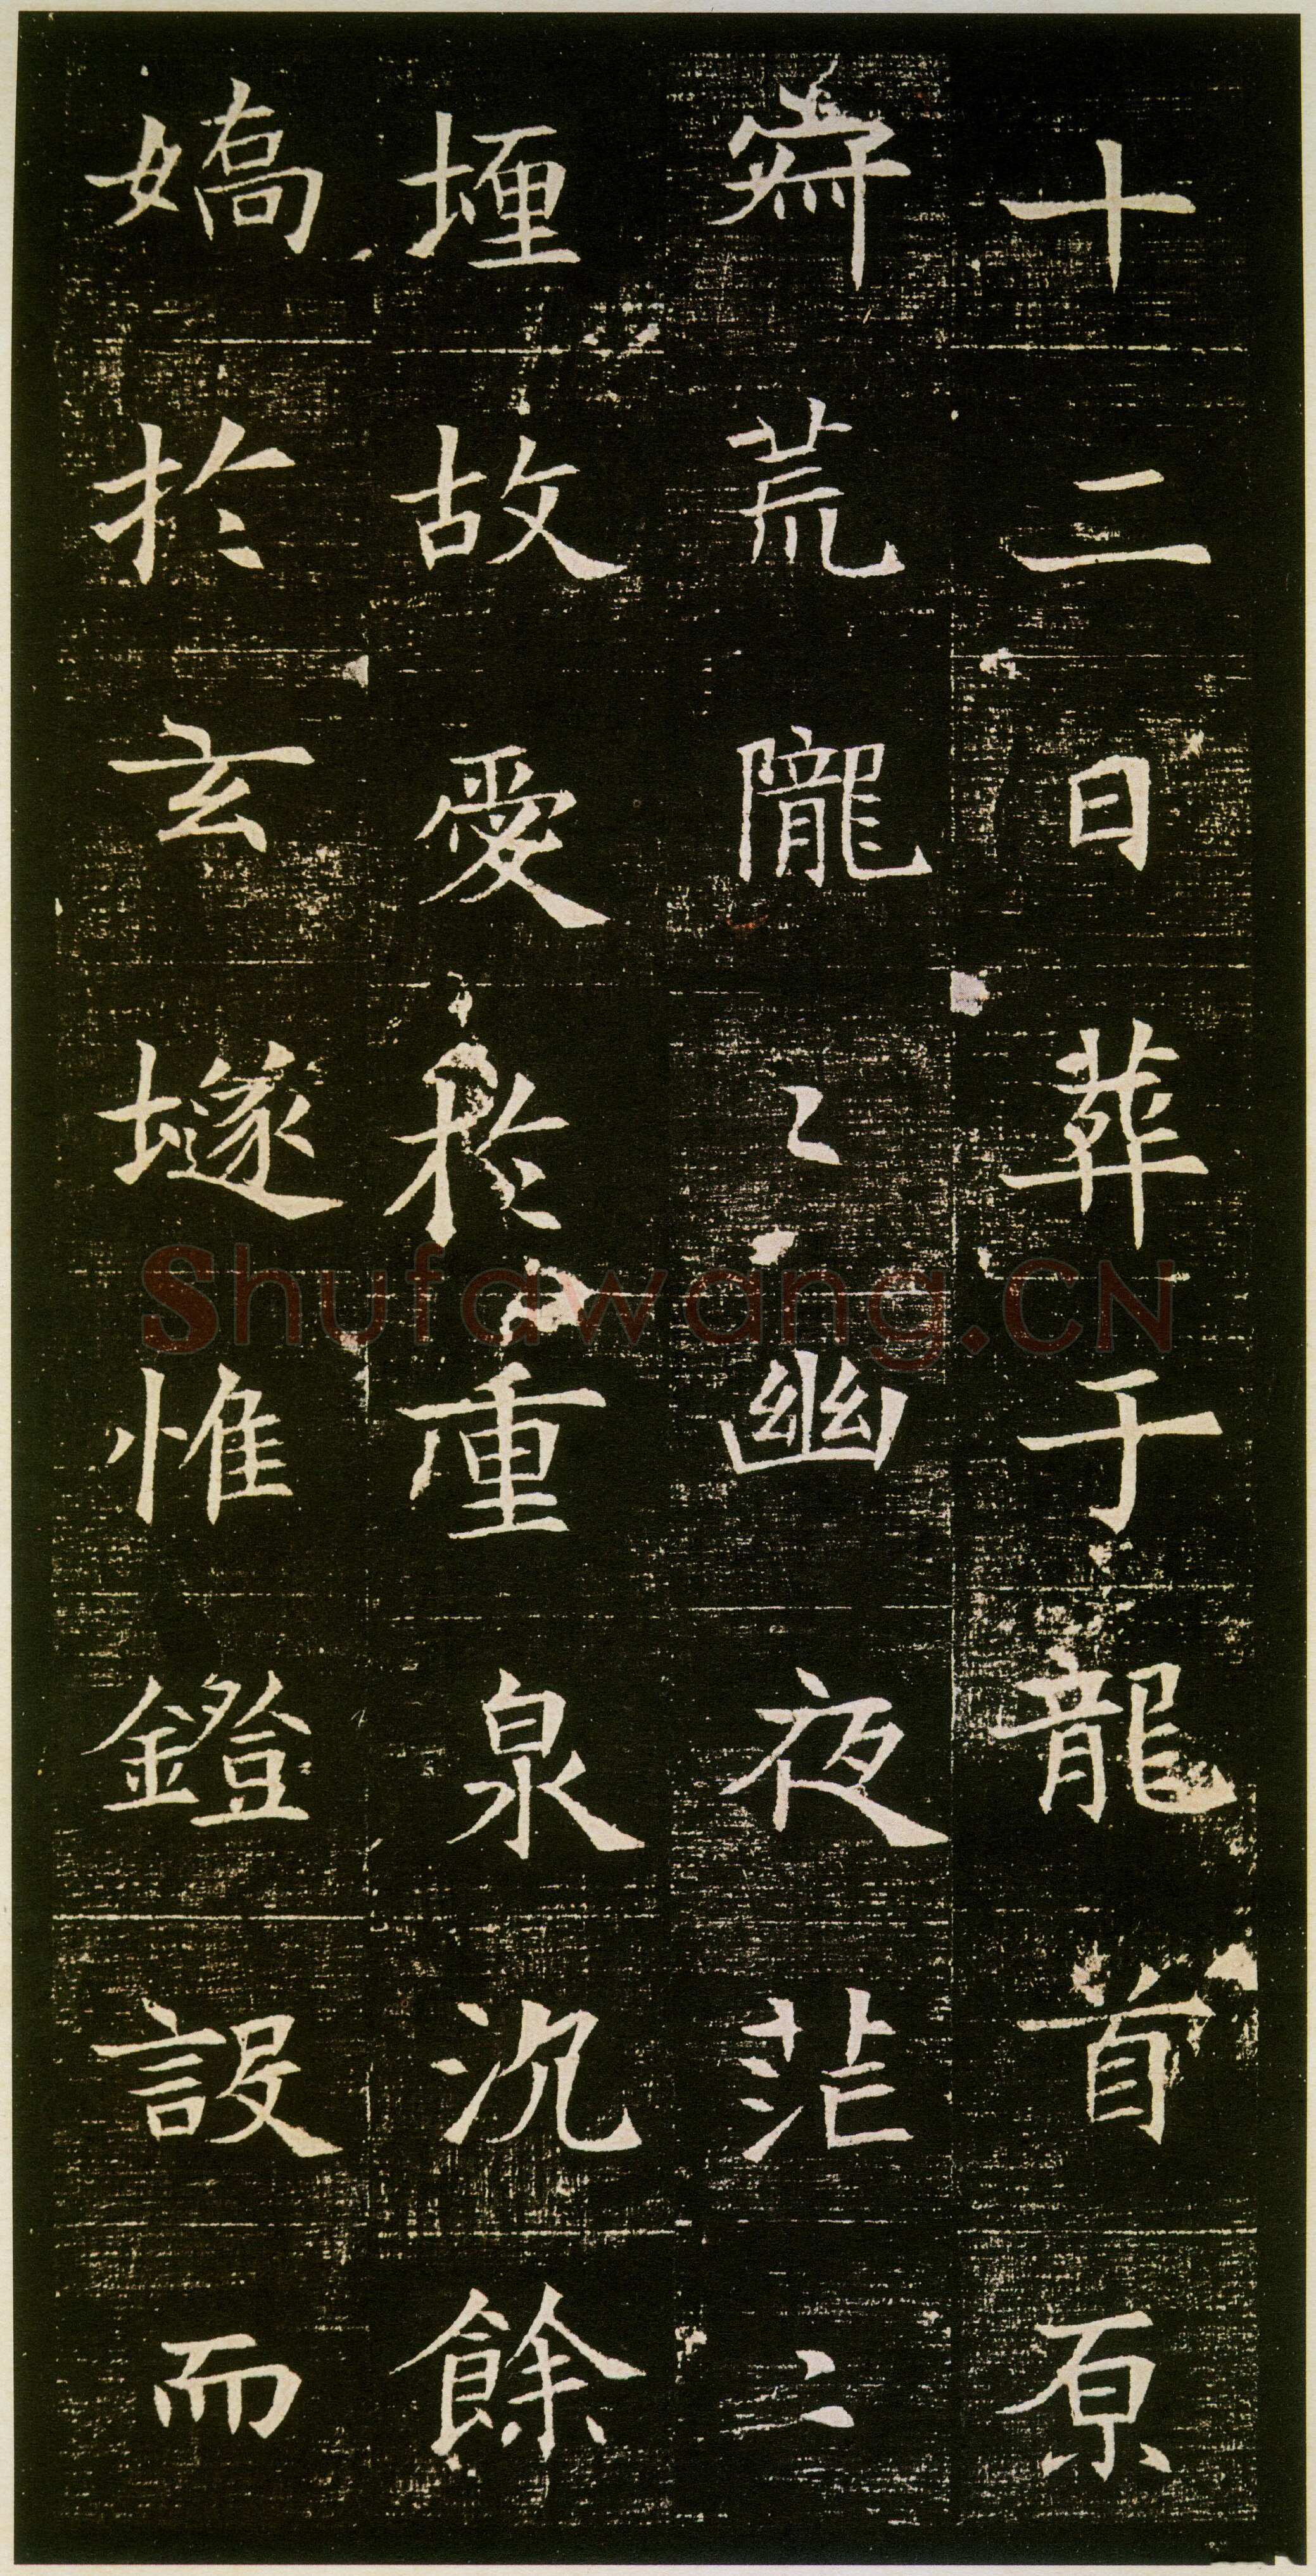 十二日葬于龍首原
寂荒隴〻幽夜茫〻
埋故愛於重泉沉餘
嬌於玄隧惟鐙設而
Shufawang.CN